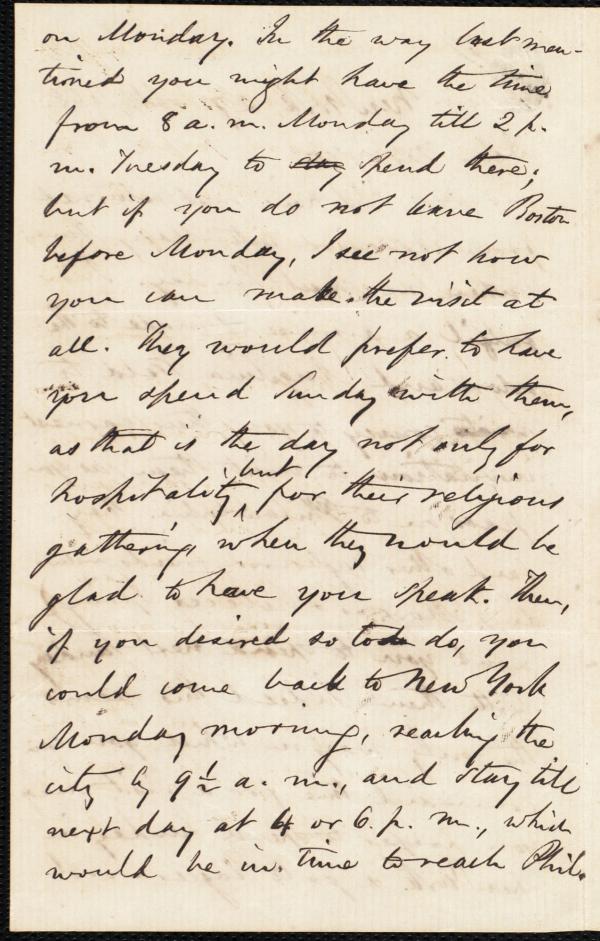 on Monday. In the way last men-
tioned you might have the time
from 8 a. m. Monday till 2 p.
m. Tuesday to stay spend there;
but if you do not leave Boston
before Monday, I see not how
you can make the visit at
all. They would prefer to have
you spend Sunday with them,
as that is the day not only for
hospitality, but for their religious
gathering, when they would be
glad to have you speak. Then,
if you desired so to do, you
could come back to New York
Monday morning, reaching the
city by 9½ a. m., and stay till
next day at 4 or 6 p. m., which
would be in time to reach Phil.